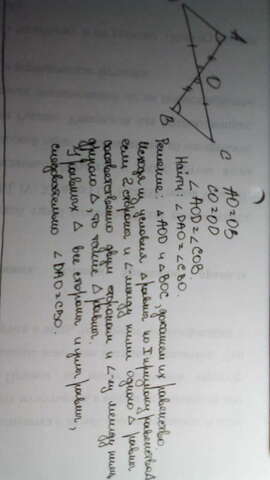 A
O
B
C
AO=OB
CO=OD
∠AOD=∠COB
Найти: ∠DAO=∠CBO.
Решение: △AOD и △BOC, докажем их равенство.
Исходя из условия △ равны по I признаку равенства △
если 2 стороны и ∠ между ними одного △ равны
соответственно двум сторонам и ∠-лу между ними
другого △, то такие △ равны.
У равных △ все стороны и углы равны,
следовательно ∠DAO=CBO.